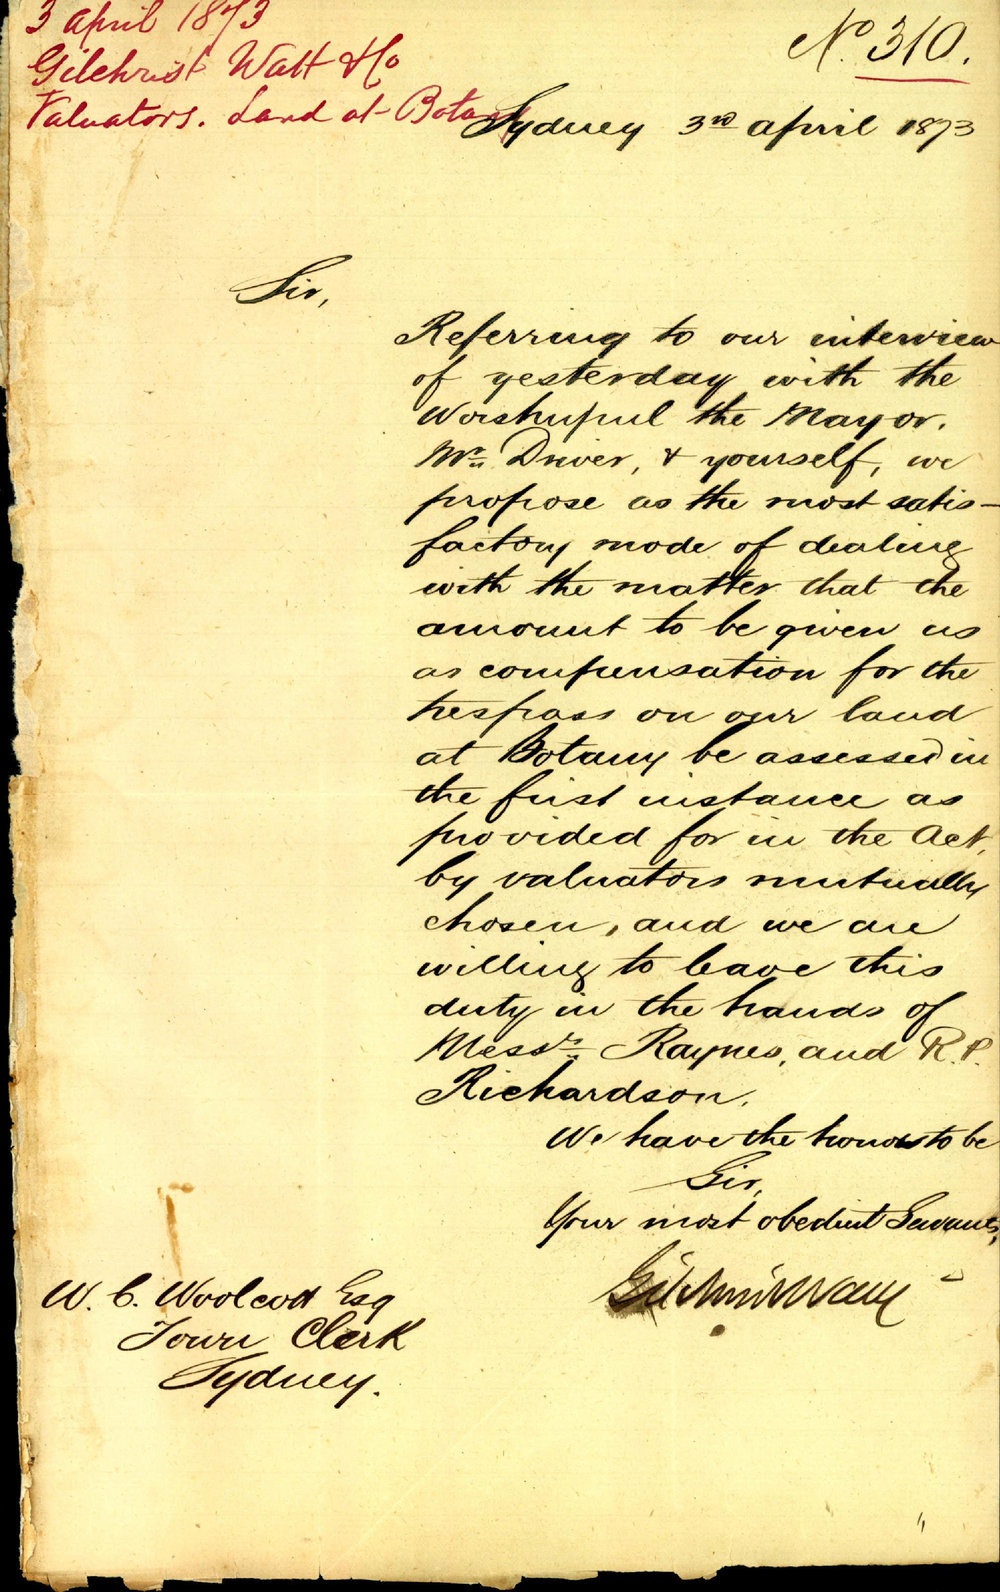 3 April 1873
Gilchrist Watt & Co
Valuators. Land at Botany
No. 310.
Sydney 3rd April 1873
Sir,
Referring to our interview
of yesterday with the
Worshipful the Mayor,
Mr. Driver, & yourself, we
propose as the most satis-
factory mode of dealing
with the matter that the
amount to be given us
as compensation for the
trespass on our land
at Botany be assessed in
the first instance as
provided for in the Act,
by valuators mutually
chosen, and we are
willing to leave this
duty in the hands of
Messrs. Raynes, and R. P.
Richardson.
We have the honor to be
Sir,
Your most obedient Servants,
Gilchrist Watt
W. C. Woolcott Esq
Town Clerk
Sydney.